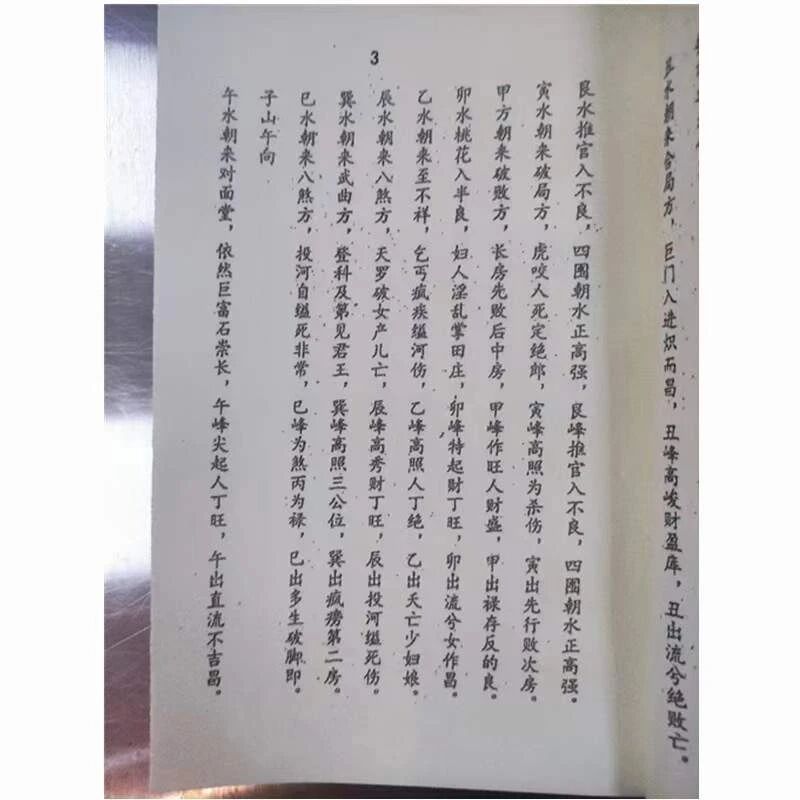 丑水朝来合局方，巨门入进炽而昌，丑峰高峻财盈库，丑出流兮绝败亡。
3
艮水推官入不良，四围朝水正高强，艮峰推官入不良，四围朝水正高强。
寅水朝来破局方，虎咬人死定绝郎，寅峰高照为杀伤，寅出先行败次房。
甲方朝来破败方，长房先败后中房，甲峰作旺人财盛，甲出禄存反的良。
卯水桃花入半良，妇人淫乱掌田庄，卯峰特起财丁旺，卯出流兮女作昌。
乙水朝来至不祥，乞丐疯疾缢河伤，乙峰高照人丁绝，乙出夭亡少妇娘。
辰水朝来八煞方，天罗破女产儿亡，辰峰高秀财丁旺，辰出投河缢死伤。
巽水朝来武曲方，登科及第见君王，巽峰高照三公位，巽出疯痨第二房。
巳水朝来八煞方，投河自缢死非常，巳峰为煞丙为禄，巳出多生破脚郎。
子山午向
午水朝来对面堂，依然巨富石崇长，午峰尖起人丁旺，午出直流不吉昌。